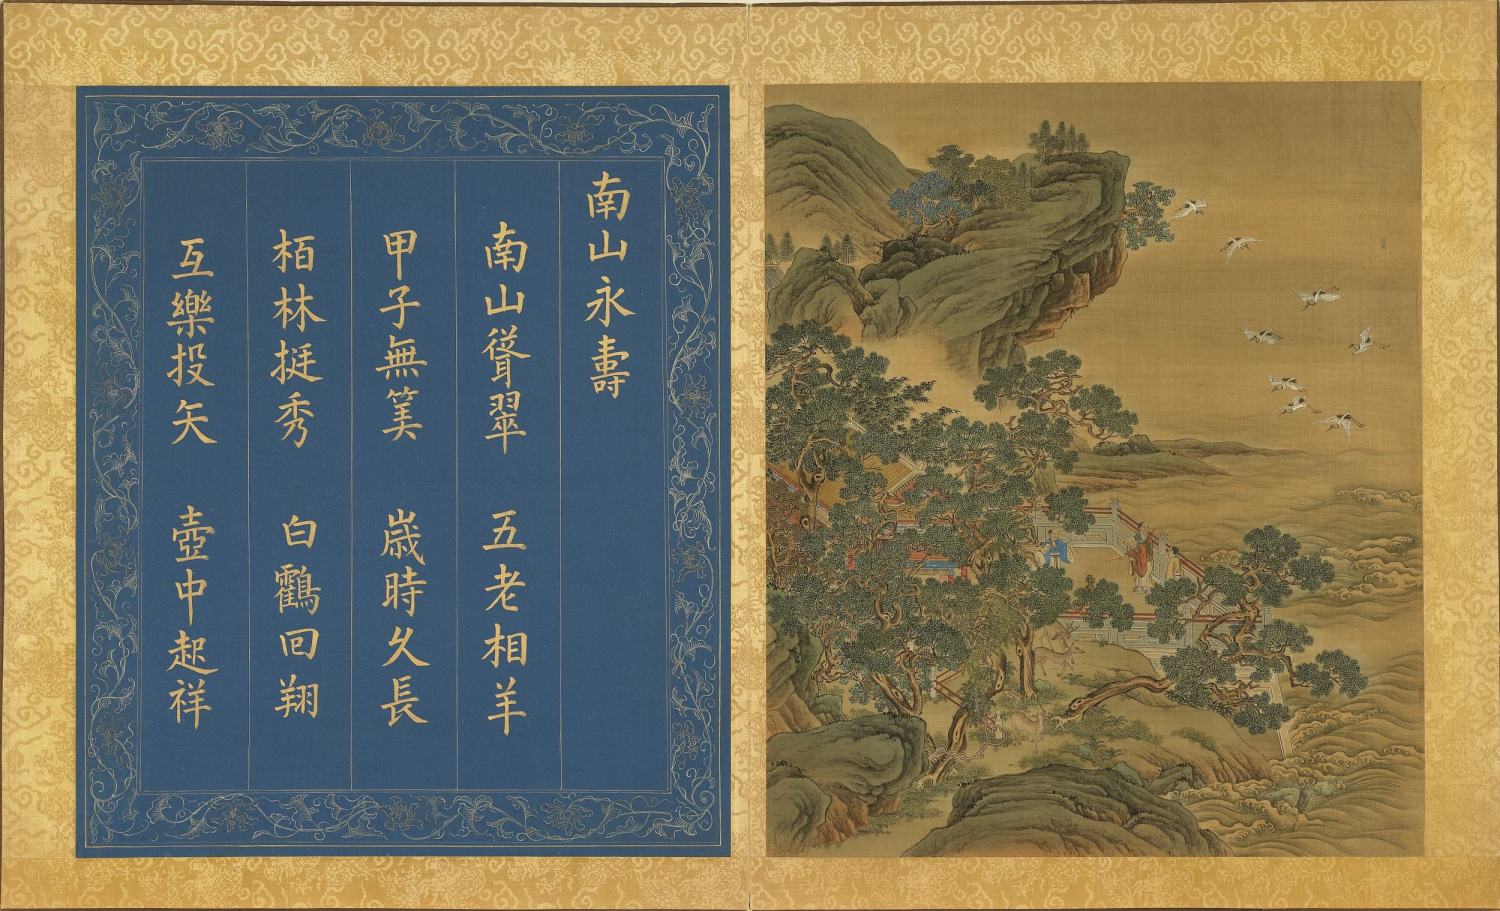 南山永壽
南山聳翠　五老相羊
甲子無筭　歲時久長
栢林挺秀　白鶴回翔
互樂投矢　壺中起祥